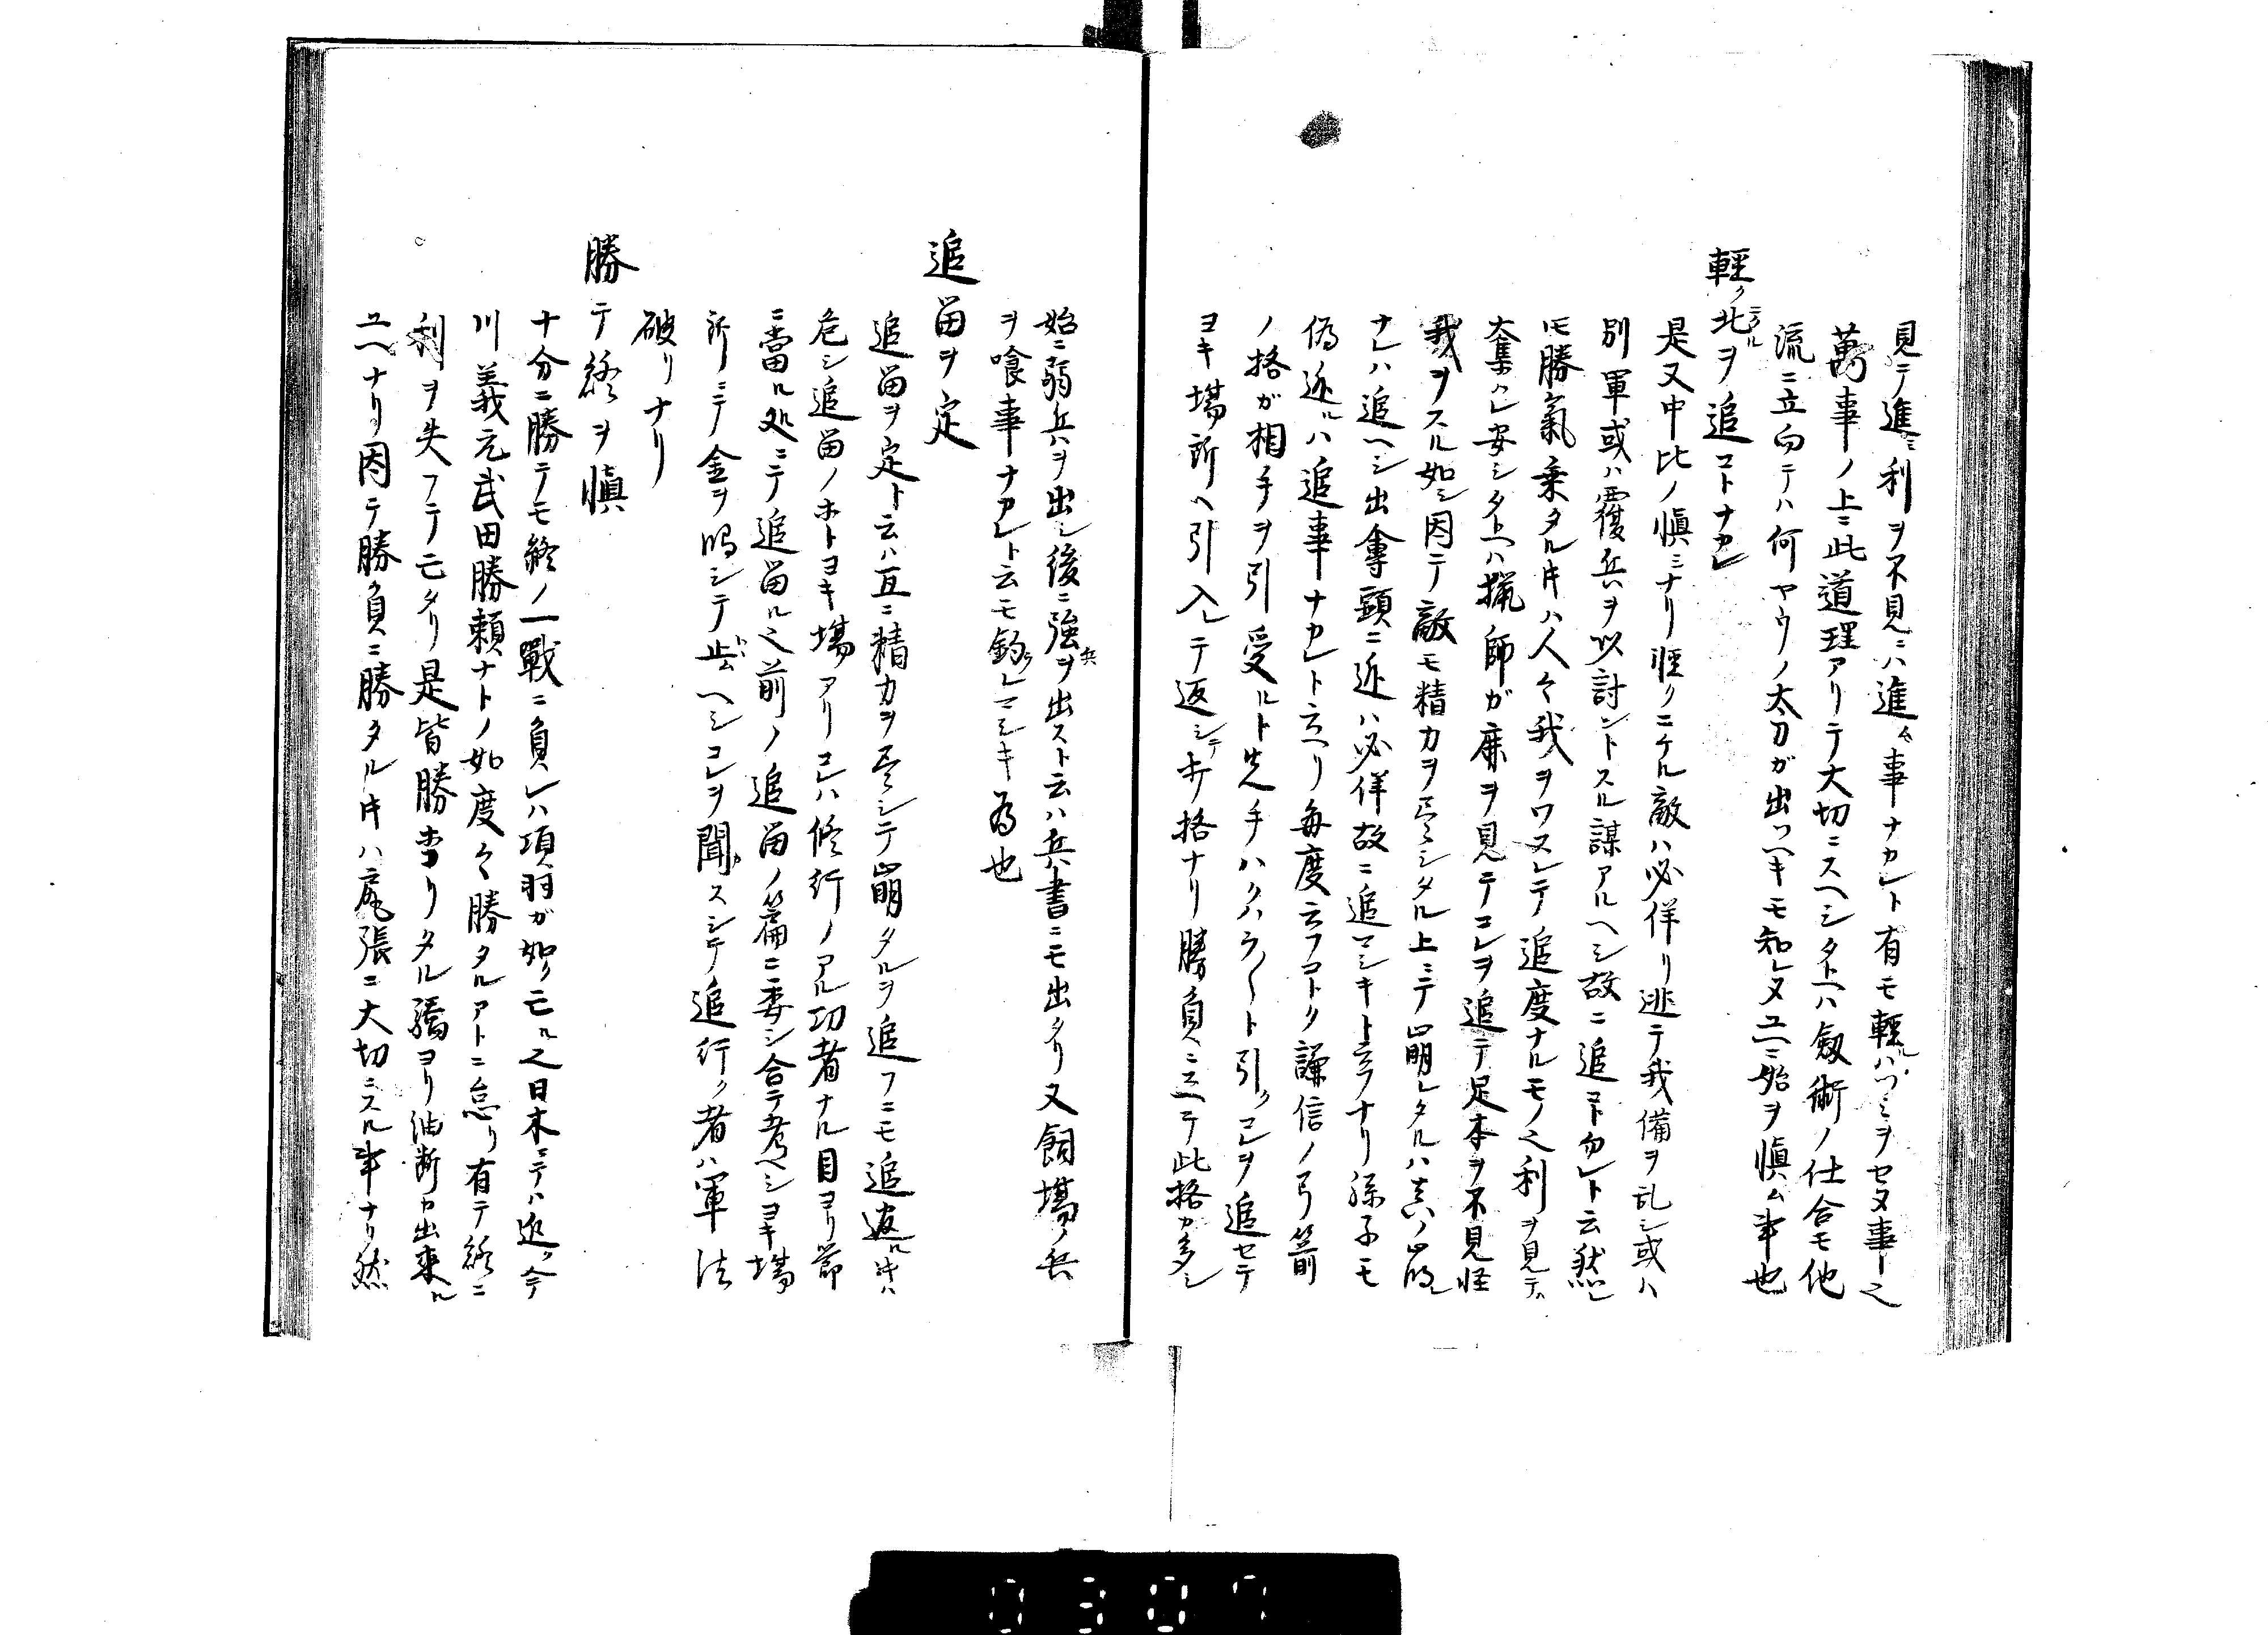 見テ進ミ利ヲ不見ニハ進ム事ナカレト有モ輕ルハツミヲセヌ事之
萬事ノ上ニ此道理アリテ大切ニスヘシタトヘハ劔術ノ仕合モ他
流ニ立向テハ何ヤウノ太刀が出ヘキモ知レヌユヘニ始ヲ慎ム事也
輕ク北ニクルヲ追コトナカレ
是又中比ノ慎ミナリ軽クニケル敵ハ必佯リ逃テ我備ヲ乱シ或ハ
別軍或ハ覆兵ヲ以討ントスル謀アルヘシ故ニ追コト勿レト云然レ
𪜈勝氣乗タル片ハ人々我ヲワスレテ追度ナルモノ之利ヲ見テハ
奪ハレ安シタトヘハ猟師が鹿ヲ見テコレヲ追テ足本ヲ不見怪
我ヲスル如シ因テ敵モ精力ヲ尽シタル上ニテ崩レタルハ真ノ崩レ
ナレハ追ヘシ出會頭ニ近ハ必佯故ニ追マシキト云フナリ孫子モ
偽迯ルハ追事ナカレト云ヘリ毎度云フコトク謙信ノ弓箭
ノ格が相手ヲ引受ルト先手ハクハラ〱ト引クコレヲ追セテ
ヨキ場所ヘ引入レテ返シテ討格ナリ勝負ニ云ヘテ此格カ多シ
始ニ弱兵ヲ出シ後ニ強兵ヲ出スト云ハ兵書ニモ出タリ又飼塲ノ兵
ヲ喰事ナカレト云モ釣ラレマシキ為也
追留ヲ定
追留ヲ定ト云ハ互ニ精力ヲ尽シテ崩タルヲ追フニモ追過ル片ハ
危シ追留ノホトヨキ塲アリコレハ修行ノアル功者ナル目ヨリ節
ニ當ル処ニテ追留ル之前ノ追留ノ篇ニ委シ合テ考ヘシヨキ塲
所ニテ金ヲ鳴シテ止ムヘシコレヲ聞カスシテ追行ク者ハ軍法
破リナリ
勝テ終ヲ慎
十分ニ勝テモ終ノ一戰ニ負レハ項羽が如ク亡ル之日本ニテハ近ク今
川義元武田勝頼ナトノ如度々勝タルアトニ怠リ有テ終ニ
利ヲ失フテ亡タリ是皆勝誇リタル驕ヨリ油断カ出来ル
ユヘナリ因テ勝負ニ勝タル片ハ尾張ニ大切ニスル事ナリ然